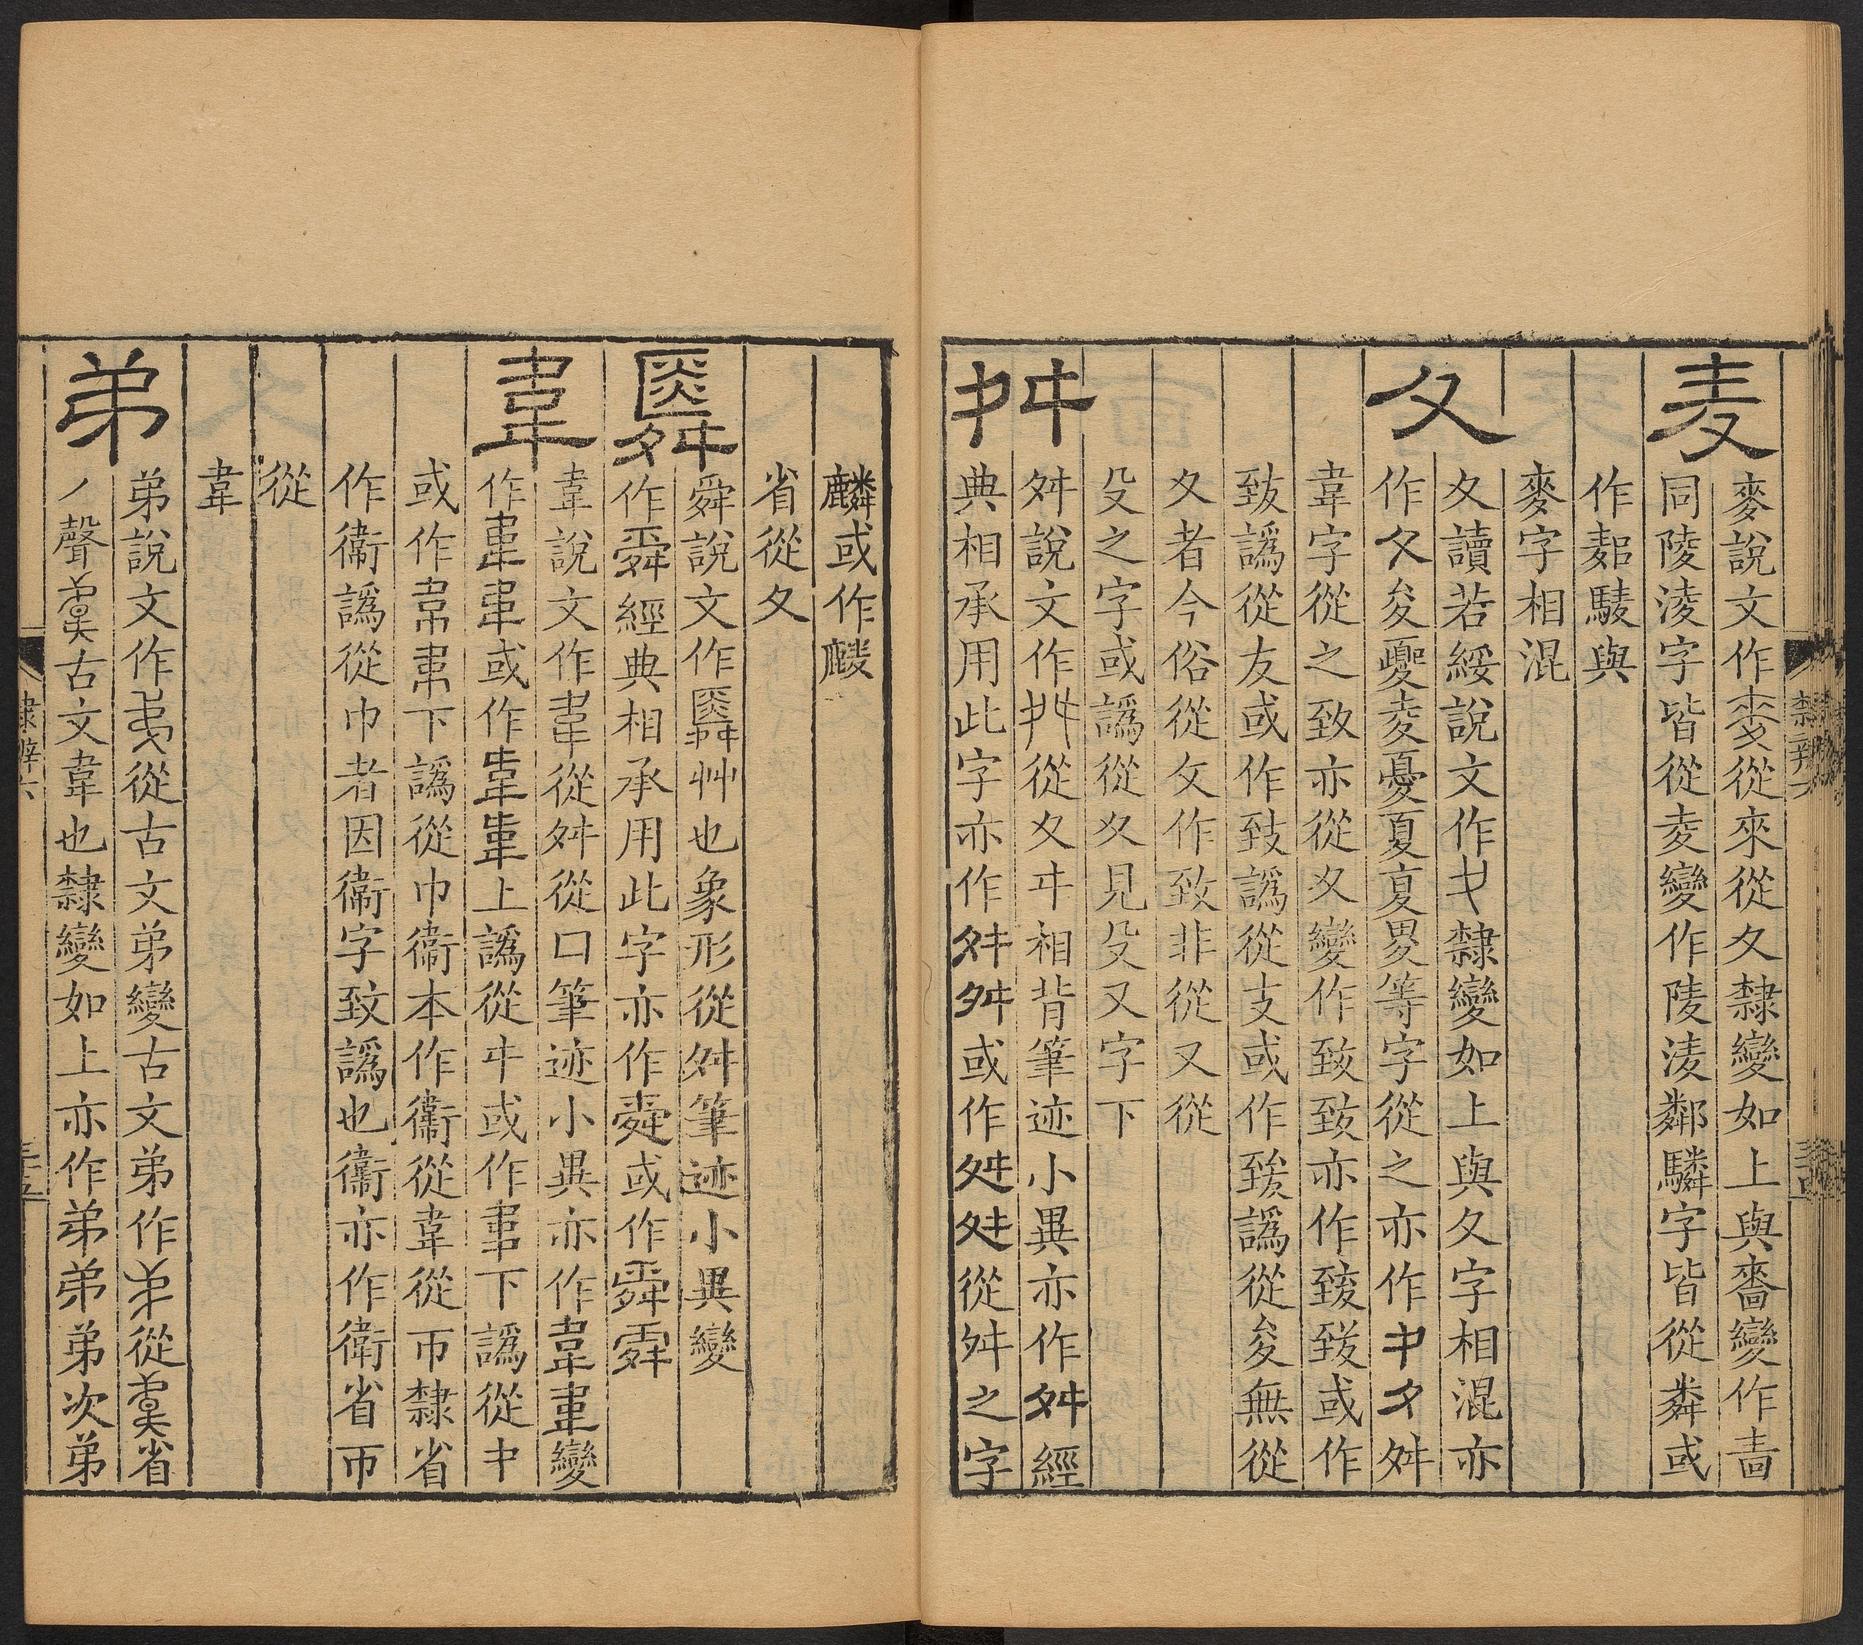 麦
麥說文作從來從夊隸變如上與嗇變作啬
同陵淩字皆從夌變作陵淩鄰驎字皆從粦或
作麹騐與
麥字相混
夊
夊讀若綏說文作隸變如上與夂字相混亦
作夂夋夔夌憂夏夏畟等字從之亦作舛
韋字從之致亦從夊變作致致亦作致致或作
致譌從友或作致譌從支或作致譌從夋無從
夊者今俗從攵作致非從又從
殳之字或譌從夊見殳又字下
舛
舛說文作從夊㐄相背筆迹小異亦作舛經
典相承用此字亦作舛舛或作舛舛從舛之字
麟或作麟
省從夊
舜說文作䑞艸也象形從舛筆迹小異變
作舜經典相承用此字亦作舜或作舜舜
韋
韋說文作韋從舛從口筆迹小異亦作韋韋變
作韋或作韋韋上譌從㐄或作下譌從
或作下譌從巾衞本作衞從韋從帀隸省
作衞譌從巾者因衞字致譌也衞亦作衛省帀
從
韋
弟
弟說文作從古文弟變古文弟作從省
丿聲古文韋也隸變如上亦作弟弟弟次弟
隸辨六
三十四
隸辨六
三十五